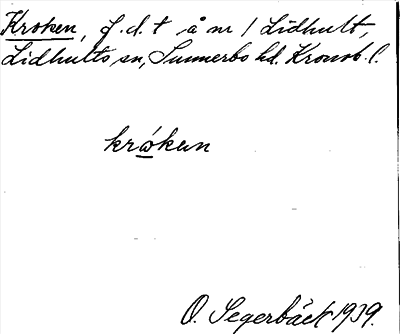 Kroken, f.d.t å nr 1 Lidhult,
Lidhults sn, Sunnerbo hd. Kronob. l.
krokun
O. Segerbäck 1939.